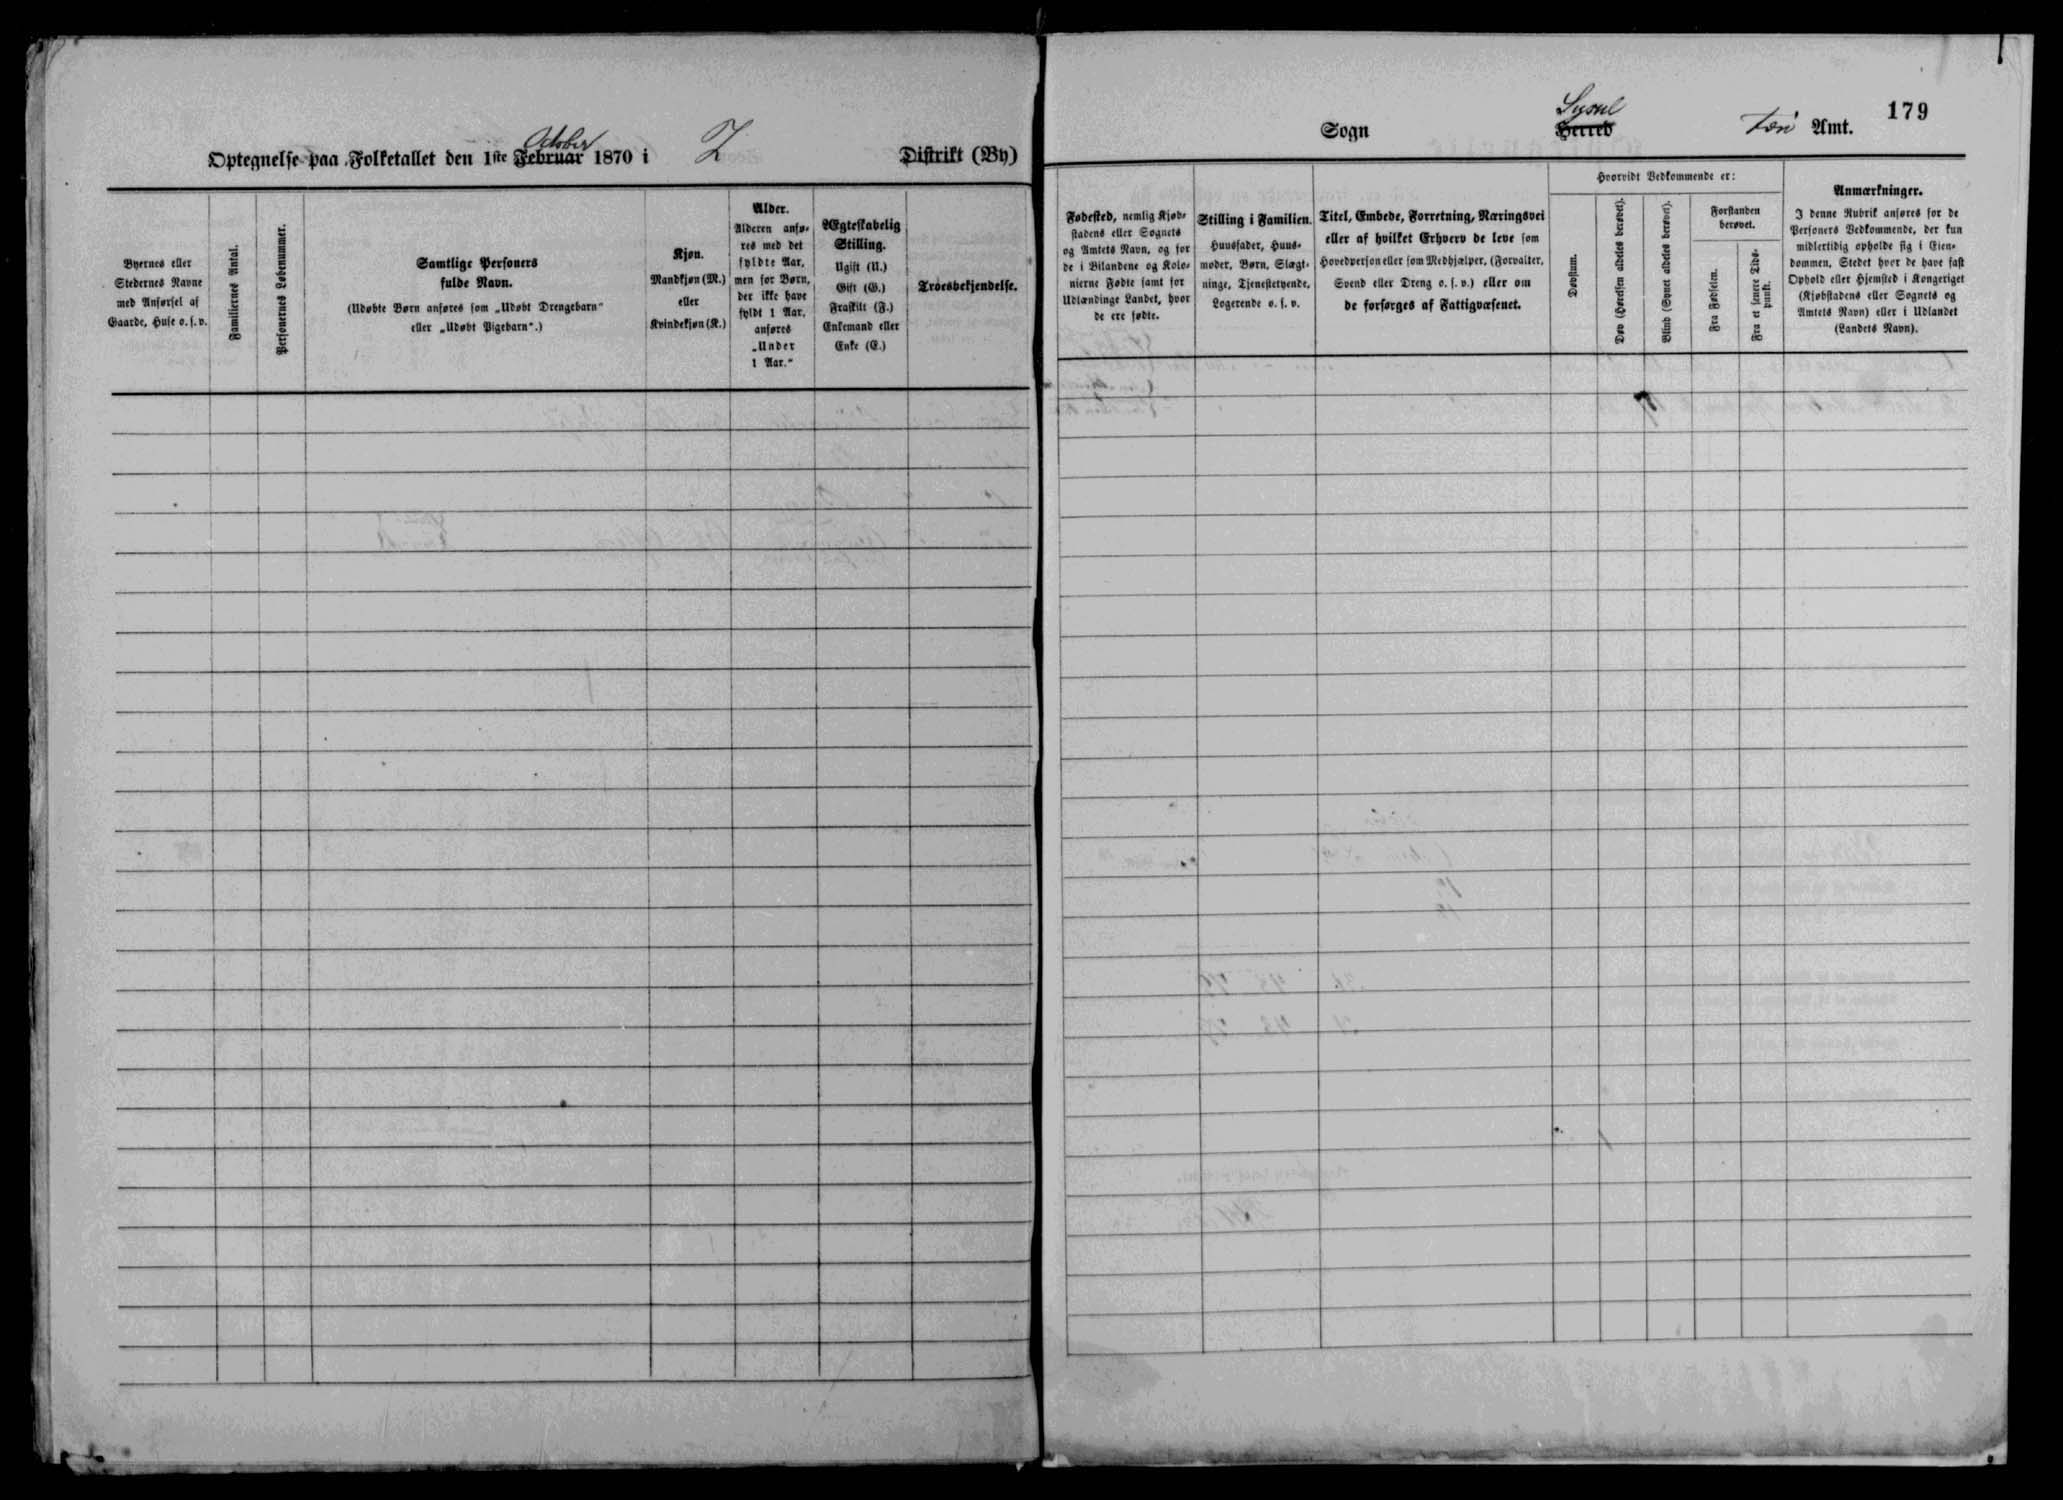 October
Optegnelse paa Folketallet den 1ste Februar 1870 i Distrikt (By)
Byernes eller
Stedernes Navne
med Anførsel af
Gaarde, Huse o. s. v.
Familiernes Antal.
Personernes Løbenummer.
Samtlige Personers
fulde Navn.
(Udøbte Børn anføres som „Udøbt Drengebarn“
eller „Udøbt Pigebarn“.)
Kjøn.
Mandkjøn (M.)
eller
Kvindekjøn (K.)
Alder.
Alderen anfø-
res med det
fyldte Aar,
men for Børn,
der ikke have
fyldt 1 Aar,
anføres
„Under
1 Aar.“
Ægteskabelig
Stilling.
Ugift (U.)
Gift (G.)
Fraskilt (F.)
Enkemand eller
Enke (E.)
Troesbekjendelse.
179
Syssel
Sogn Herred Færø Amt.
Fødested, nemlig Kjøb-
stadens eller Sognets
og Amtets Navn, og for
de i Bilandene og Kolo-
nierne Fødte samt for
Udlændinge Landet, hvor
de ere fødte.
Stilling i Familien.
Huusfader, Huus-
moder, Børn, Slægt-
ninge, Tjenestetyende,
Logerende o. s. v.
Titel, Embede, Forretning, Næringsvei
eller af hvilket Erhverv de leve som
Hovedperson eller som Medhjælper, (Forvalter,
Svend eller Dreng o. s. v.) eller om
de forsørges af Fattigvæsenet.
Hvorvidt Vedkommende er:
Døvstum.
Døv (Hørelsen aldeles berøvet).
Blind (Synet aldeles berøvet).
Forstanden
berøvet.
Fra Fødselen.
Fra et senere Tids-
punkt.
Anmærkninger.
I denne Rubrik anføres for de
Personers Vedkommende, der kun
midlertidig opholde sig i Eien-
dommen, Stedet hvor de have fast
Ophold eller Hjemsted i Kongeriget
(Kjøbstadens eller Sognets og
Amtets Navn) eller i Udlandet
(Landets Navn).